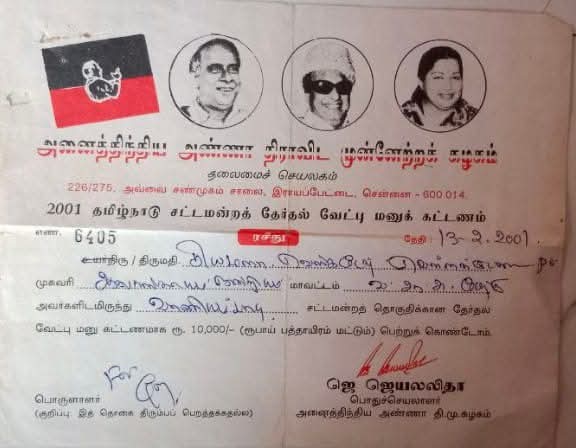 அனைத்திந்திய அண்ணா திராவிட முன்னேற்றக் கழகம்
தலைமைச் செயலகம்
226/275, அவ்வை சண்முகம் சாலை, இராயப்பேட்டை, சென்னை - 600 014.
2001 தமிழ்நாடு சட்டமன்றத் தேர்தல் வேட்பு மனுக் கட்டணம்
எண். 6405 ரசீது தேதி : 13-2-2001
உயர்திரு / திருமதி.
முகவரி மாவட்டம்
அவர்களிடமிருந்து வாணியம்பாடி சட்டமன்றத் தொகுதிக்கான தேர்தல்
வேட்பு மனு கட்டணமாக ரூ. 10,000/- (ரூபாய் பத்தாயிரம் மட்டும்) பெற்றுக் கொண்டோம்.
பொருளாளர்
(குறிப்பு: இத் தொகை திரும்பப் பெறத்தக்கதல்ல)
ஜெ ஜெயலலிதா
பொதுச்செயலாளர்
அனைத்திந்திய அண்ணா தி.மு.கழகம்